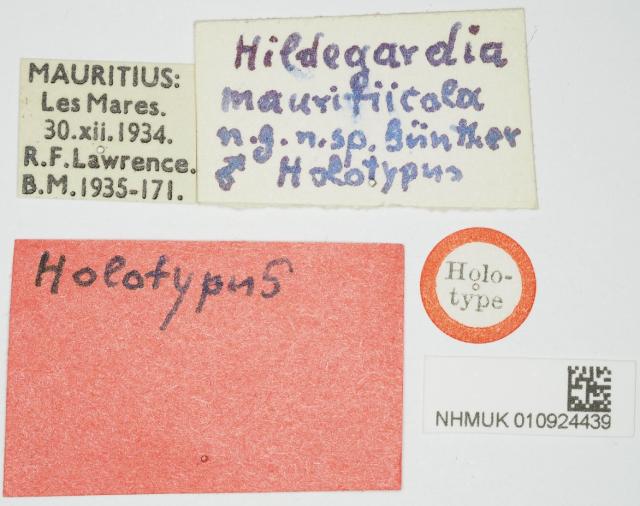 MAURITIUS:
Les Mares.
30.xii.1934.
R.F.Lawrence.
B.M.1935-171.
Hildegardia
mauritiicola
n.g.n.sp. Günther
♂ Holotypus
Holotypus
Holo-
type
NHMUK 010924439